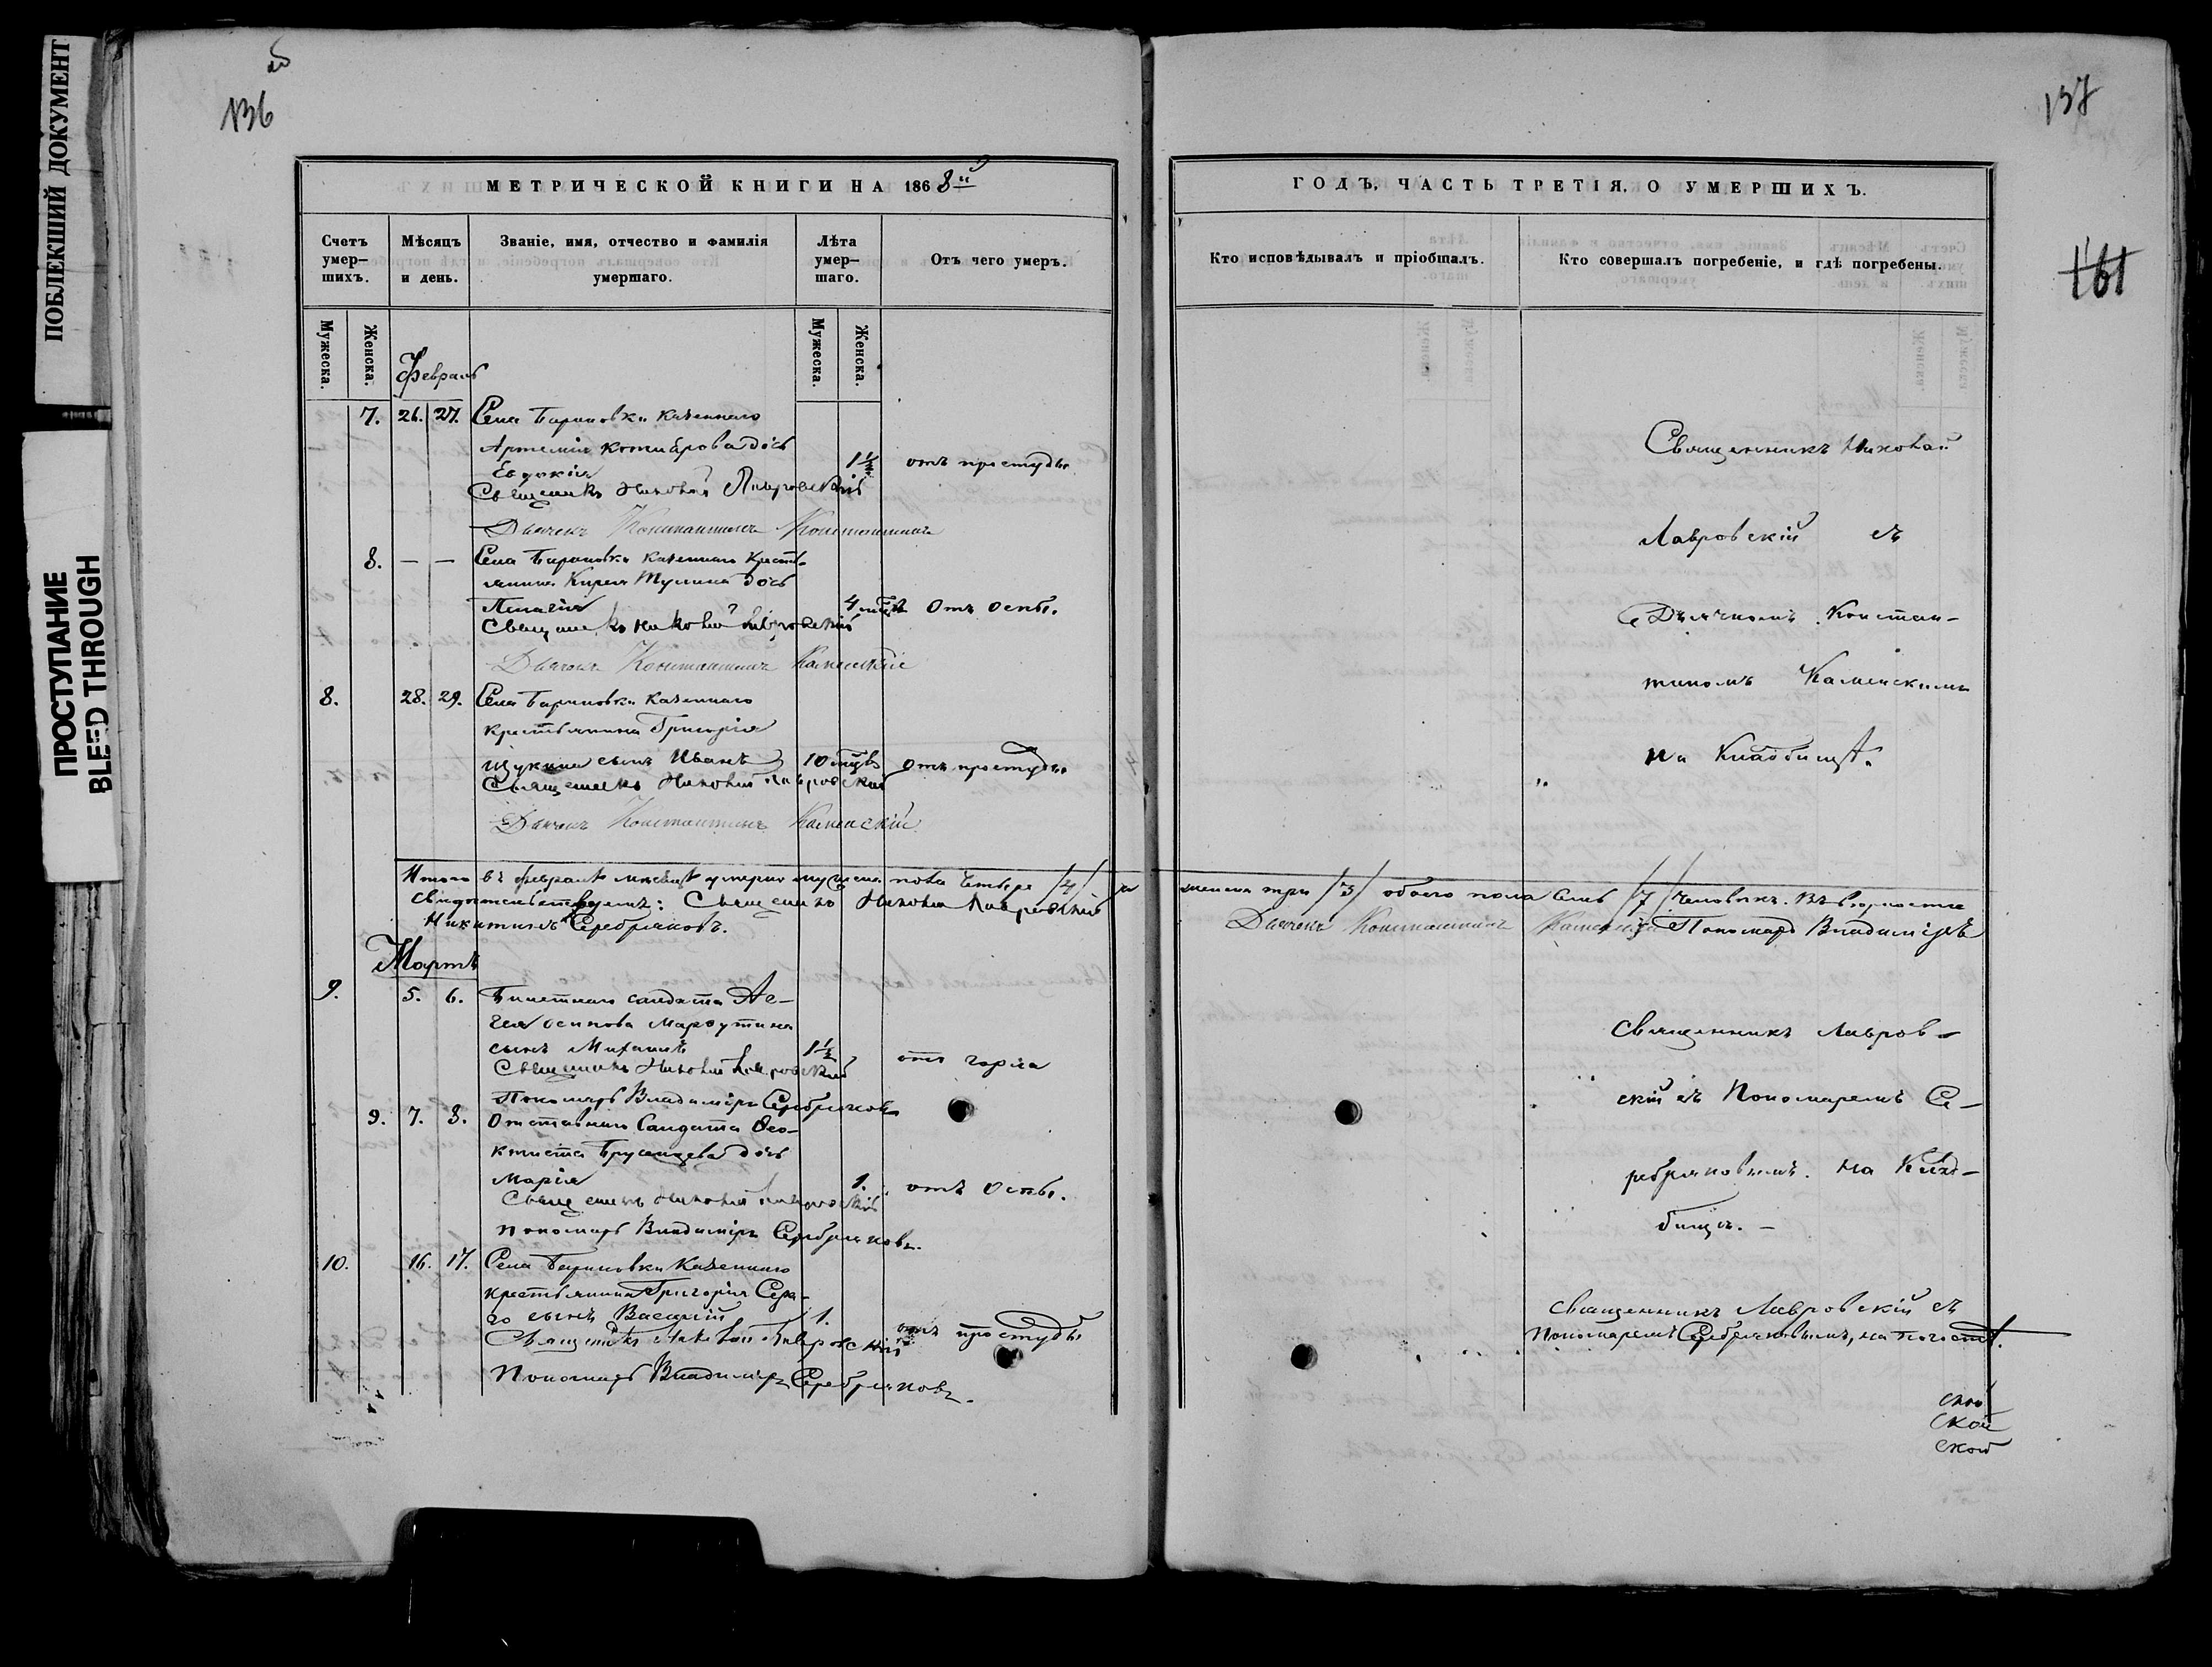 ПОБЛЕКШИЙ ДОКУМЕНТ
ПРОСТУПАНИЕ
BLEED THROUGH
136
МЕТРИЧЕСКОЙ КНИГИ НА 1868й
Счетъ умер–шихъ.
Мѣсяцъ и день.
Званіе, имя, отчество и фамилія умершаго.
Лѣта умер–шаго.
Отъ чего умеръ.
Мужеска.
Женска.
Мужеска.
Женска.
Февраль
7. 26. 27. Села Бариновки казеннаго
Артемія дочь
Евдокія 1½ отъ простуды
Священникъ Николай Лавровскій
Дьячекъ Константинъ
8. — — Села Бариновки казеннаго кресть-
янина Тумина дочь
Пелагія 4 отъ оспы.
Священникъ Николай Лавровскій
Дьячекъ Константинъ Каменскій
8. 28. 29. Села Бариновки казеннаго
крестьянина Григорія
Щукина сынъ Иванъ 10 мцвъ отъ простуды
Священникъ Николай Лавровскій
Дьячекъ Константинъ Каменскій
Итого въ февралѣ мѣсяцѣ умерло мужеска пола четыре /4/ и
свидѣтельствуемъ: Священникъ Николай Лавровскій
Никитинъ Серебряковъ.
Мартъ
9. 5. 6. Билетнаго солдата Ае-
Осипова
сынъ Михаилъ 1½ отъ горла
Священникъ Николай Лавровскій
Пономарь Владиміръ Серебряковъ
9. 7. 8. Отставнаго солдата Ѳео-
ктиста дочь
Марія 1. отъ оспы.
Священникъ Николай Лавровскій
Пономарь Владиміръ Серебряковъ.
10. 16. 17. Села Бариновки казеннаго
крестьянина Григорія Сера-
го сынъ Василій 1. отъ простуды
Священникъ Николай Лавровскій
Пономарь Владиміръ Серебряковъ.
137
161
ГОДЪ, ЧАСТЬ ТРЕТІЯ, О УМЕРШИХЪ.
Кто исповѣдывалъ и пріобщалъ.
Кто совершалъ погребеніе, и гдѣ погребены.
Священникъ Николай
Лавровскій съ
Дьячкомъ Констан-
тиномъ Каменскимъ
на Кладбищѣ.
женска три /3/ обоего пола семь /7/ человѣкъ. Въ вѣрности
Дьячекъ Константинъ Каменскій Пономарь Владиміръ
Священникъ Лавров-
скій съ Пономаремъ Се-
ребряковымъ. на Клад-
бищѣ. —
Священникъ Лавровскій съ
Пономаремъ Серебряковымъ, на погостѣ.
ской
ской
ской